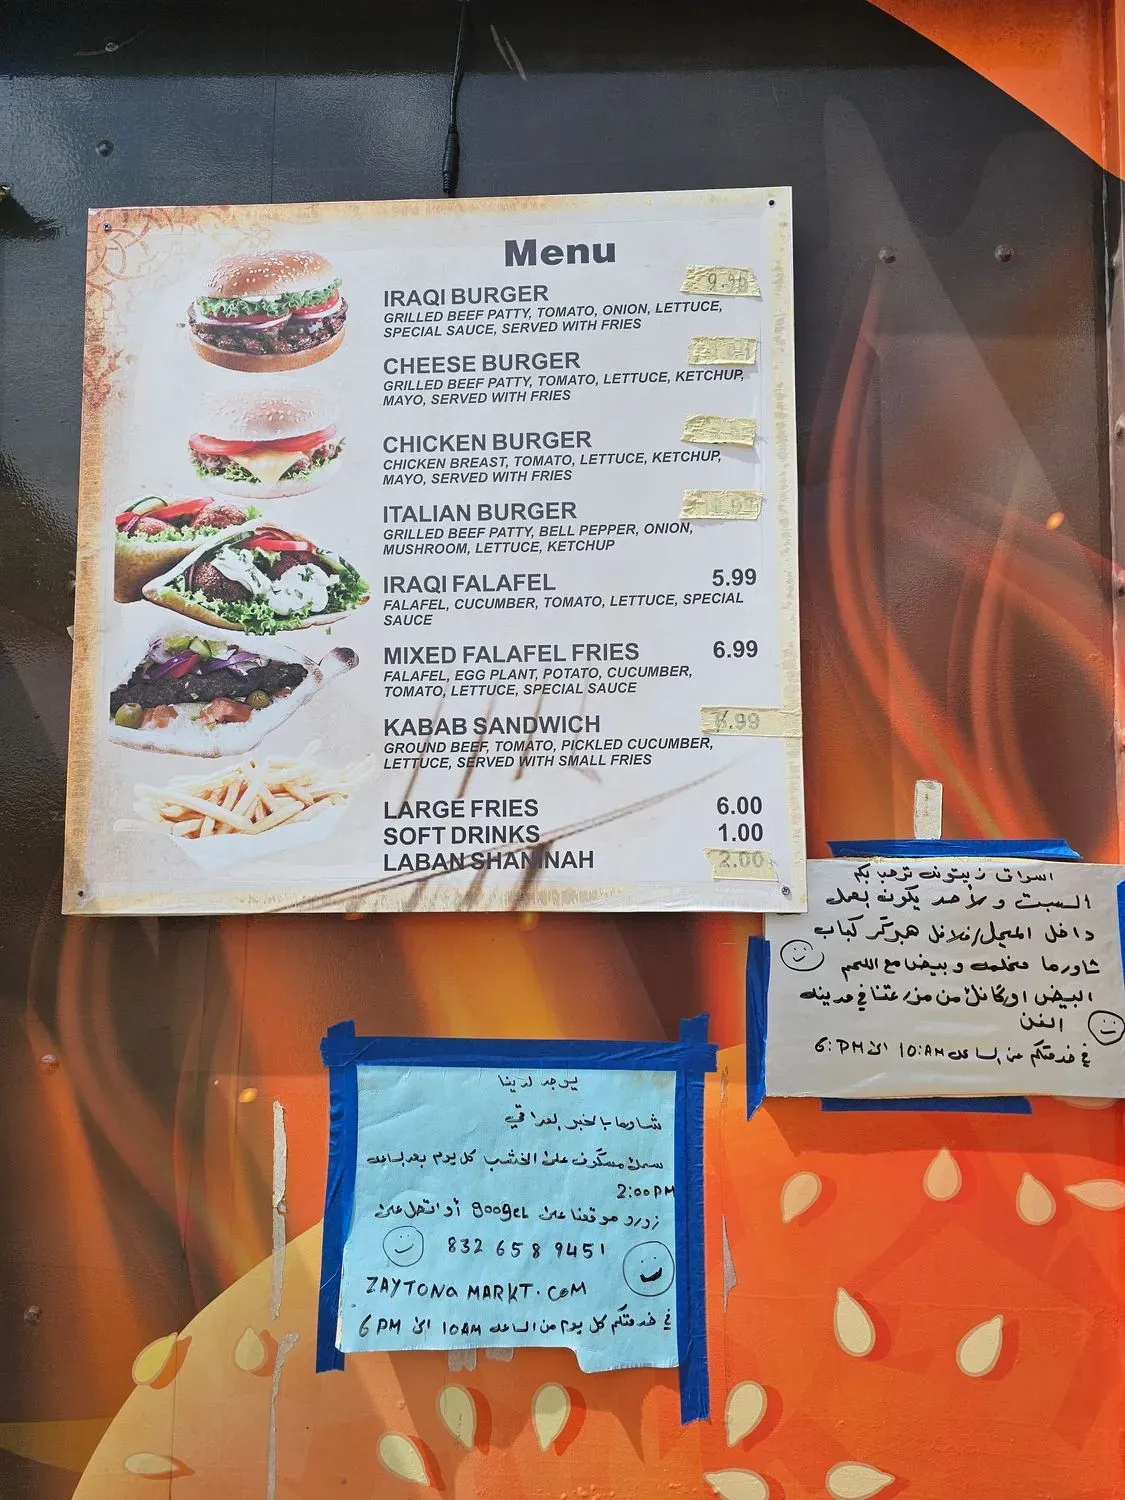 Menu
IRAQI BURGER 9.99
GRILLED BEEF PATTY, TOMATO, ONION, LETTUCE,
SPECIAL SAUCE, SERVED WITH FRIES
CHEESE BURGER
GRILLED BEEF PATTY, TOMATO, LETTUCE, KETCHUP,
MAYO, SERVED WITH FRIES
CHICKEN BURGER
CHICKEN BREAST, TOMATO, LETTUCE, KETCHUP,
MAYO, SERVED WITH FRIES
ITALIAN BURGER
GRILLED BEEF PATTY, BELL PEPPER, ONION,
MUSHROOM, LETTUCE, KETCHUP
IRAQI FALAFEL 5.99
FALAFEL, CUCUMBER, TOMATO, LETTUCE, SPECIAL
SAUCE
MIXED FALAFEL FRIES 6.99
FALAFEL, EGG PLANT, POTATO, CUCUMBER,
TOMATO, LETTUCE, SPECIAL SAUCE
KABAB SANDWICH 6.99
GROUND BEEF, TOMATO, PICKLED CUCUMBER,
LETTUCE, SERVED WITH SMALL FRIES
LARGE FRIES 6.00
SOFT DRINKS 1.00
LABAN SHANINAH 2.00
اسواق زيتونه ترحب بكم
السبت و لاحد يكون بعمل
داخل المحل/فلافل همبركر كباب
شاورما مخلمه وبيض مع اللحم
البيض اوركانك من مزرعتنا في مدينه
الفن
في خدمتكم من الساعه 10:AM الى 6:PM
يوجد لدينا
شاورما بالخبز العراقي
سمك مسكوف على الخشب كل يوم بعد الساعه
2:00 PM
زورو موقعنا على googel أو اتصل على
832 658 9451
ZAYTONA MARKT.COM
في خدمتكم كل يوم من الساعه 10AM الى 6 PM